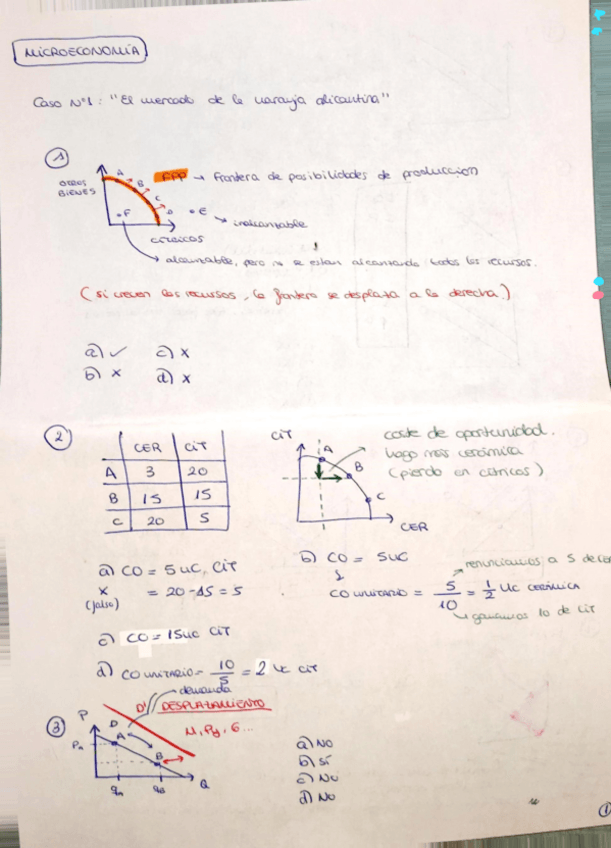 MICROECONOMÍA
Caso Nº1: "El mercado de la naranja alicantina"
1
OTROS BIENES
A
B
C
D
FPP → frontera de posibilidades de producción
·F
·E → inalcanzable
CÍTRICOS
→ alcanzable, pero no se están alcanzando todos los recursos.
(si crecen los recursos, la frontera se desplaza a la derecha.)
a) ✓ c) x
b) x d) x
2
CER CIT
A 3 20
B 15 15
C 20 5
CIT
A
B
C
CER
coste de oportunidad.
hago más cerámica
(pierdo en cítricos)
a) CO = 5 UC, CIT
x = 20-15 = 5
(falso)
b) CO = 5UC
↓
→ renunciamos a 5 de cer
CO UNITARIO = 5/10 = 1/2 UC CERÁMICA
→ ganamos 10 de cit
c) CO = 15UC CIT
d) CO UNITARIO = 10/5 = 2 UC CIT
3
P
D
demanda
D' // DESPLAZAMIENTO
M, Py, G...
A
B
Q
a) NO
b) SÍ
c) NO
d) NO
1